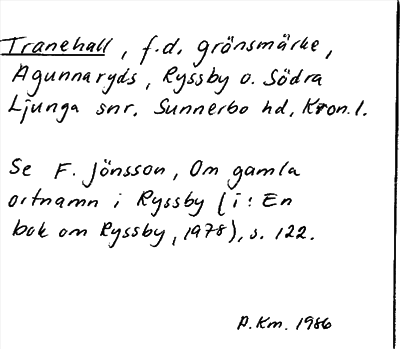 Tranehall, f.d. gränsmärke,
Agunnaryds, Ryssby o. Södra
Ljunga snr. Sunnerbo hd, Kron.l.
Se F. Jönsson, Om gamla
ortnamn i Ryssby (i: En
bok om Ryssby, 1978), s. 122.
P.Km. 1986